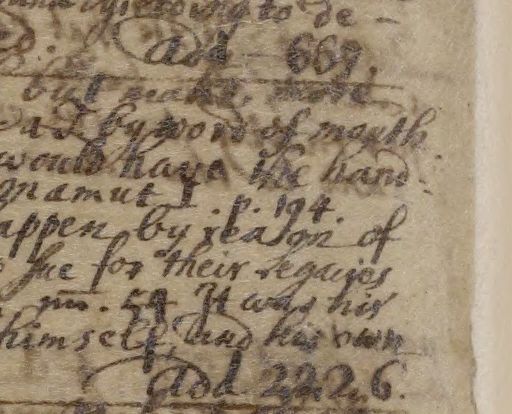 according to de-
Add 669.
but make, more
ad by word of mouth
would have the hand
gnamut I. p. 194.
appen by reason of
sue for their regaies
nu. 54 It was his
himself, and his own
Add 222.6.